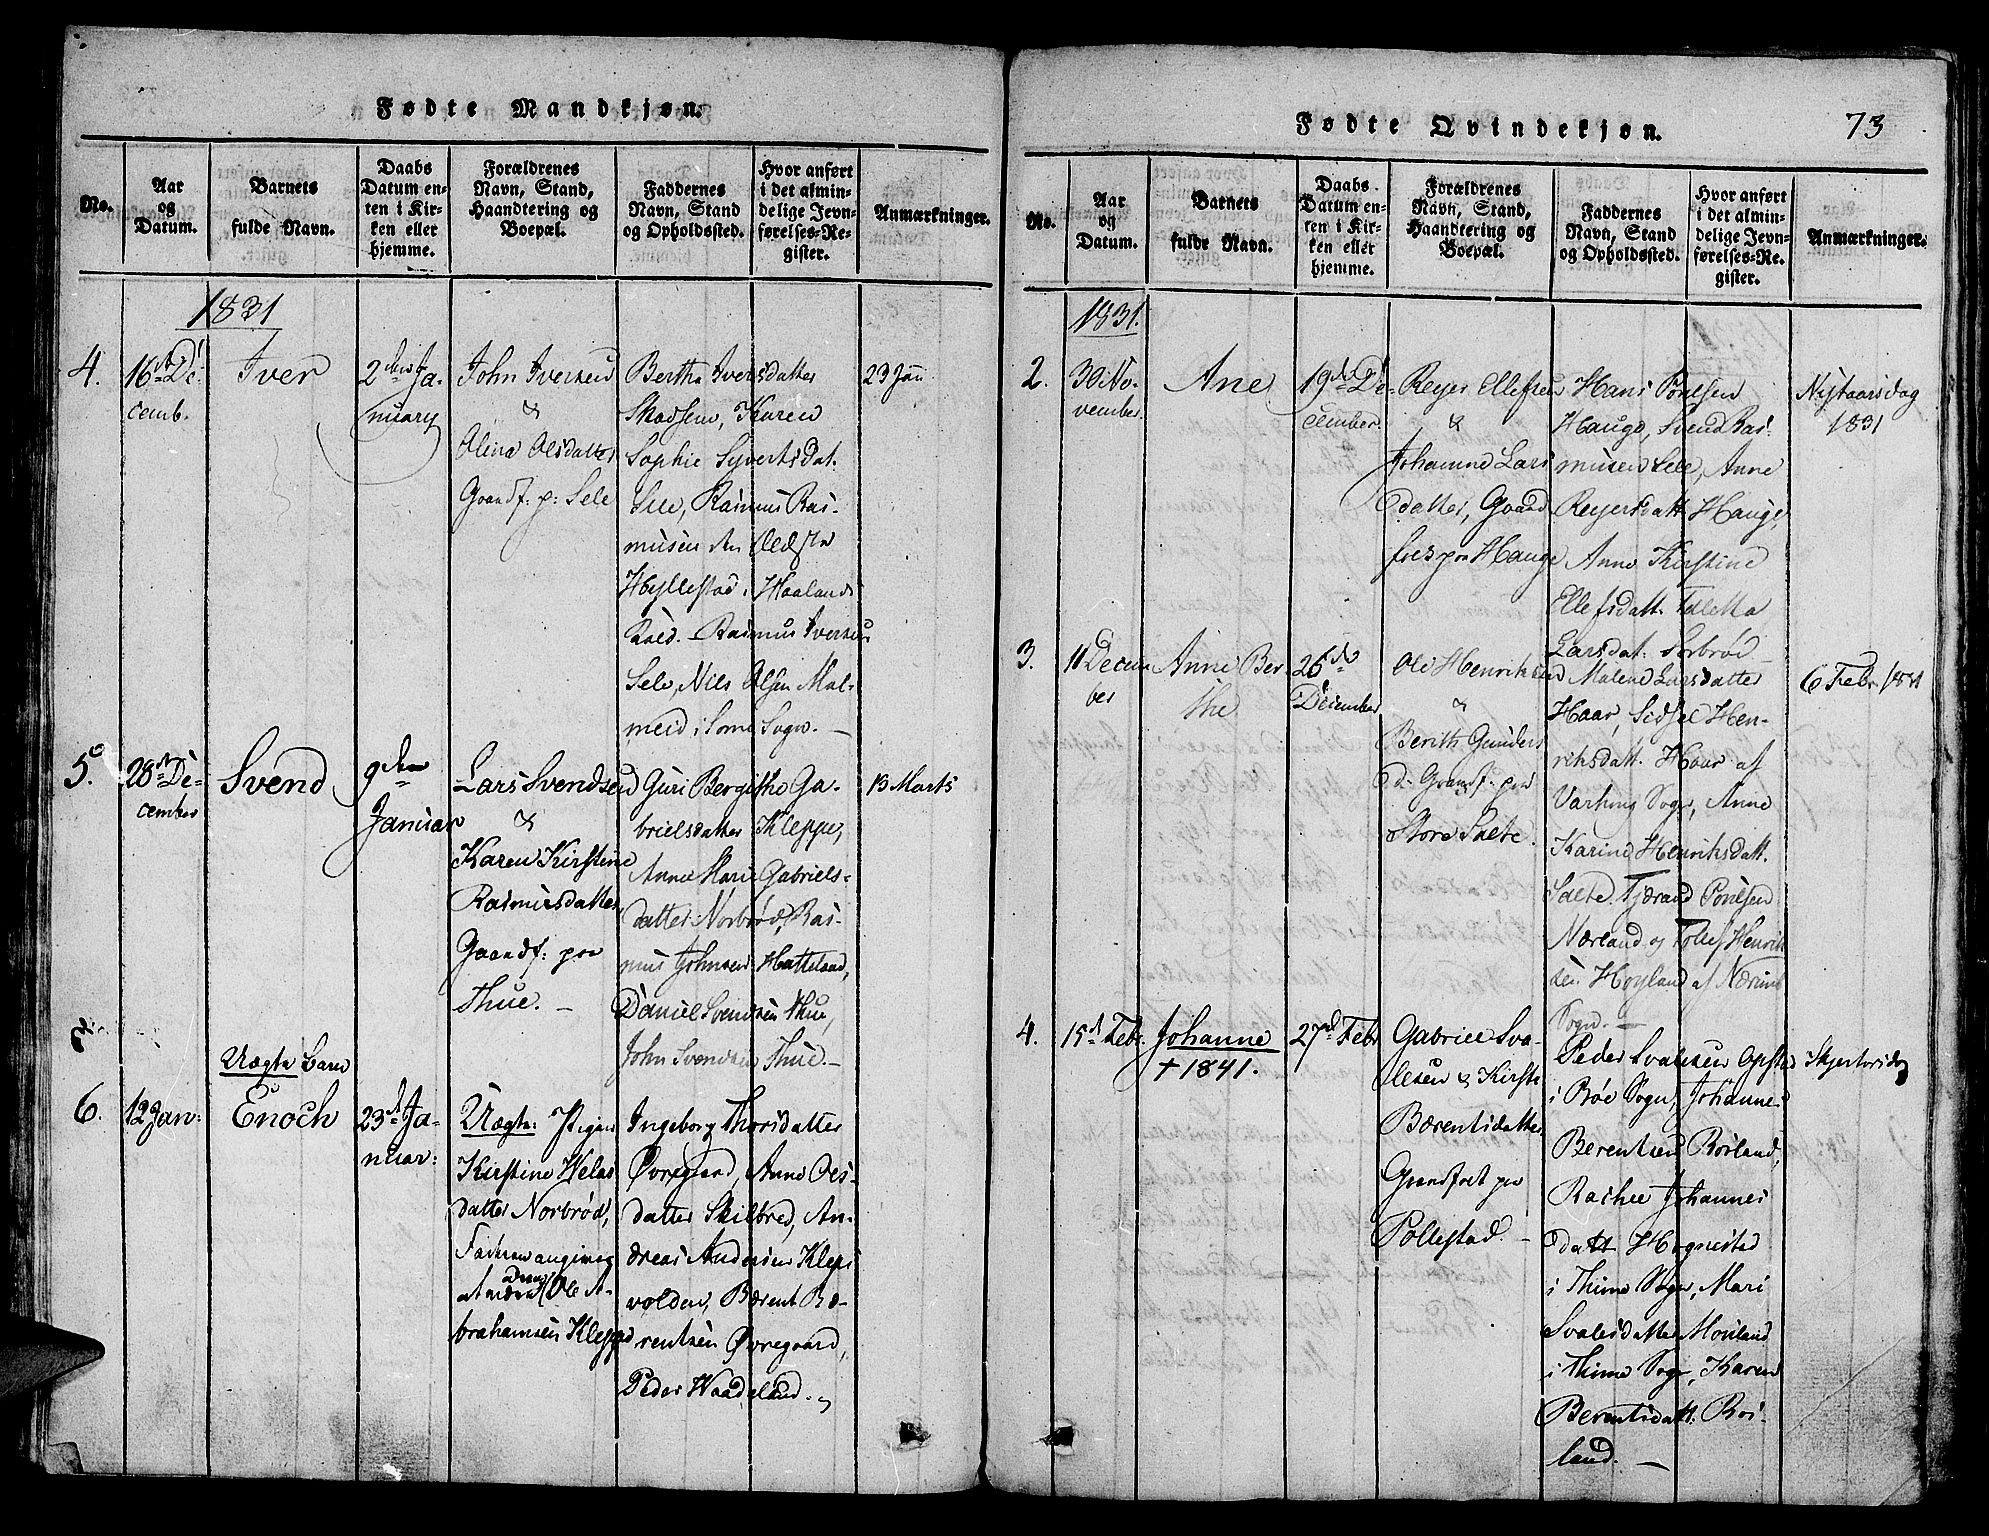 Fødte Mandkjøn.
No.
Aar og Datum.
Barnets fulde Navn.
Daabs Datum enten i Kirken eller hjemme.
Forældrenes Navn, Stand, Haandtering og Boepæl.
Faddernes Navn, Stand og Opholdssted.
Hvor anført i det almindelige Jevnførelses-Register.
Anmærkninger.
1831
4.
16de De-
cemb.
Iver
2den Ja-
nuary
John Iversen
&
Oline Olsdatter
Gaardf: p: Sele
Bertha Iversdatter
Skadsem, Karen
Sophie Syvertsdat.
Sele, Rasmus Ras-
musen den Ældste
Hyllestad i Haalands
Rasmus Iversen
Sele, Nils Olsen Mal-
meid i Some Sogn. —
23 Jan
5.
28de De-
cember
Svend
9den
Januar
Lars Svendsen
&
Karen Kirstine
Rasmusdatter,
Gaardf: paa
Thue. —
Guri Bergithe Ga-
brielsdatter Kleppe,
Anne Marie Gabriels-
datter Norbrød, Ras-
mus Johnsen Hatteland,
Daniel Svendsen Thue,
John Svendsen Thue —
13 Marts
6.
12 Jan:
Uægte Barn
Enoch
23de Ja-
nuar:
Uægte: Pigen
Kirstine Helas
datter Norbrød,
Faderen angives
at være Ole A-
brahamsen Kleppe
Ingeborg Thorsdatter
Øvregaard, Anne Oles-
datter Skilbred, An-
dreas Andersen Klep-
volden, Bærent Bæ-
rentsen Øvregaard,
Peder Waadeland.
Fødte Qvindekjøn.
73
No.
Aar og Datum.
Barnets fulde Navn.
Daabs Datum enten i Kirken eller hjemme.
Forældrenes Navn, Stand, Haandtering og Boepæl.
Faddernes Navn, Stand og Opholdssted.
Hvor anført i det almindelige Jevnførelses-Register.
Anmærkninger.
1831.
2.
30 No-
vember
Ane
19de De-
cember.
Reyer Ellefsen
&
Johanne Lars
datter, Gaard
paa Hauge
Hans Poulsen
Hauge, Svend Ras-
musen Sele, Anne
Reyersdatt. Hauge,
Anne Kirstine
Ellefsdatt.
Larsdat: Sørbrød —
Nytaarsdag
1831
3.
11 Decem
ber
Anne Ber-
the
26de
December
Ole Henriksen
&
Berith Gunders
d. Gaardf. paa
Store Salte.
Malene Larsdatter
Haar, Sidsel Hen-
riksdatt. Haar af
Varhoug Sogn, Anne
Karine Henriksdatt.
Salte, Tjærand Poulsen
Nærland og Tollef Henrik
sen Høyland af Nærim
Sogn. —
6 Febr. 1831
4.
15de Febr.
Johanne
† 1841.
27de Febr
Gabriel Sva-
lesen & Kirste
Bærentsdatter,
Gaardfolk paa
Pollestad. —
Peder Svalesen Opstad
i Bøe Sogn, Johannes
Berentsen Røiland,
Rachel Johannes
datt Hognestad
i Thime Sogn, Mari
Svalesdatter Mouland
i Thime Sogn, Karen
Berentsdatt: Røi-
land. —
Skjertorsdag